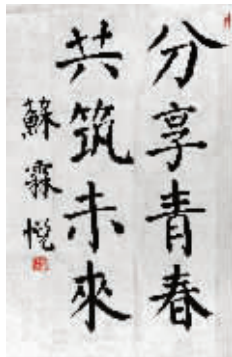 分享青春
共筑未來
蘇霖悅